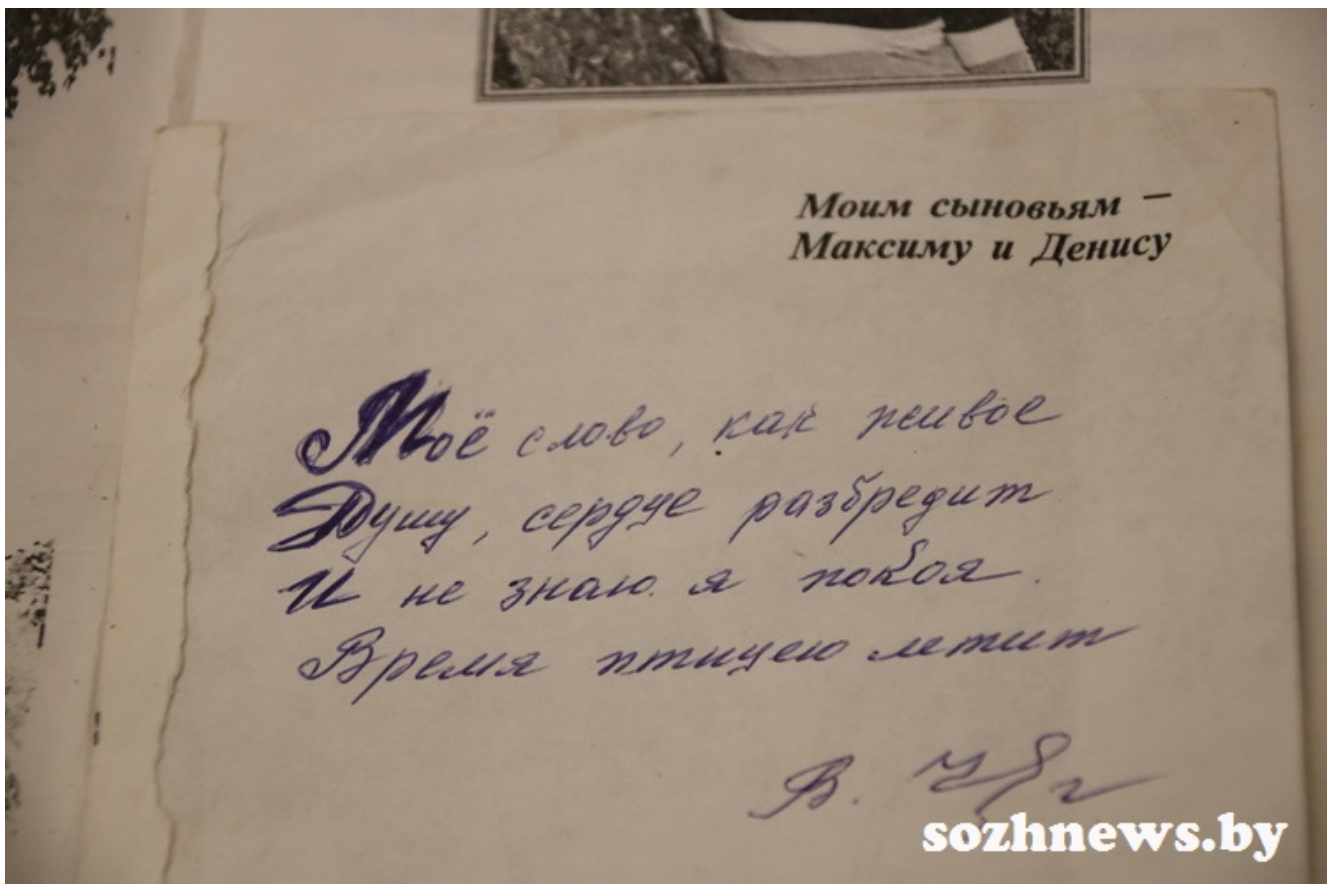 Моим сыновьям –
Максиму и Денису
Моё слово, как живое
Душу, сердце разбредит
И не знаю я покоя.
Время птицею летит
В.
sozhnews.by